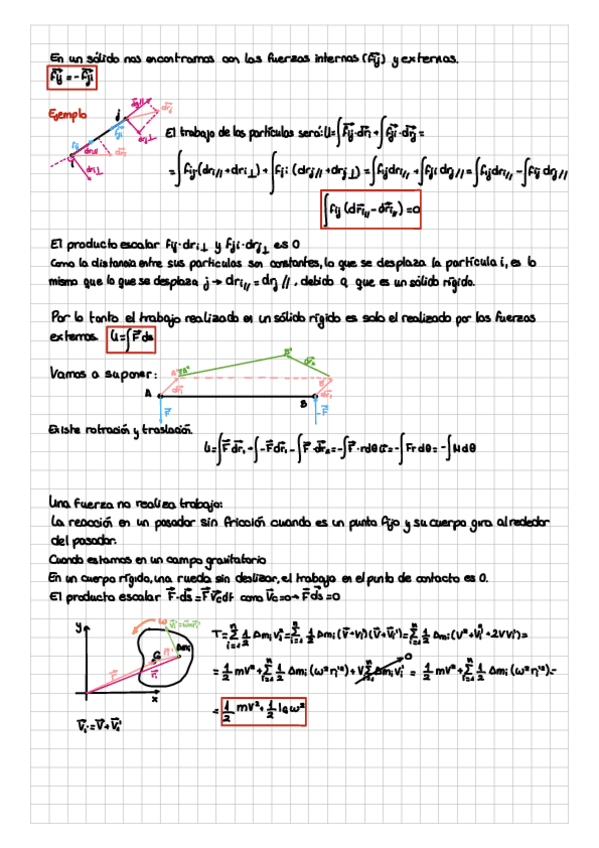 En un sólido nos encontramos con las fuerzas internas (f⃗ij) y externas.
f⃗ij = -f⃗ji
Ejemplo
El trabajo de las partículas será: U=∫f⃗ij·dr⃗i + ∫f⃗ji·dr⃗j =
=∫fij·(dri// + dri⊥) + ∫fji (drj// + drj⊥) = ∫fijdri// + ∫fji drj// = ∫fijdri// - ∫fij drj//
∫fij (dr⃗i// - dr⃗j//) = 0
El producto escalar fij·dri⊥ y fji·drj⊥ es 0
Como la distancia entre sus partículas son constantes, lo que se desplaza la partícula i, es lo
mismo que lo que se desplaza j → dri// = drj//, debido a que es un sólido rígido.
Por lo tanto el trabajo realizado en un sólido rígido es solo el realizado por las fuerzas
externas. U=∫F⃗ds
Vamos a suponer:
A
B
F⃗
-F⃗
Existe rotración y traslación.
U=∫F⃗dr⃗1 + ∫-F⃗dr⃗1 - ∫F⃗·dr⃗2 = -∫F⃗·rdθ u⃗ = -∫Fr dθ = -∫M dθ
Una fuerza no realiza trabajo:
La reacción en un pasador sin fricción cuando es un punto fijo y su cuerpo gira alrededor
del pasador.
Cuando estamos en un campo gravitatorio
En un cuerpo rígido, una rueda sin deslizar, el trabajo en el punto de contacto es 0.
El producto escalar F⃗·ds⃗ = F⃗ v⃗c dt como v⃗c = 0 → F⃗ds⃗ = 0
y
ω
G
Δmi
x
V⃗i = V⃗ + V⃗i'
T = Σ 1/2 Δmi vi² = Σ 1/2 Δmi (V⃗+Vi') (V⃗+V⃗i') = Σ 1/2 Δmi (V² + Vi'² + 2VVi') =
= 1/2 mV² + Σ 1/2 Δmi (ω² ri'²) + VΣΔmi vi' 0 = 1/2 mV² + Σ 1/2 Δmi (ω² ri'²) =
= 1/2 mV² + 1/2 IG ω²